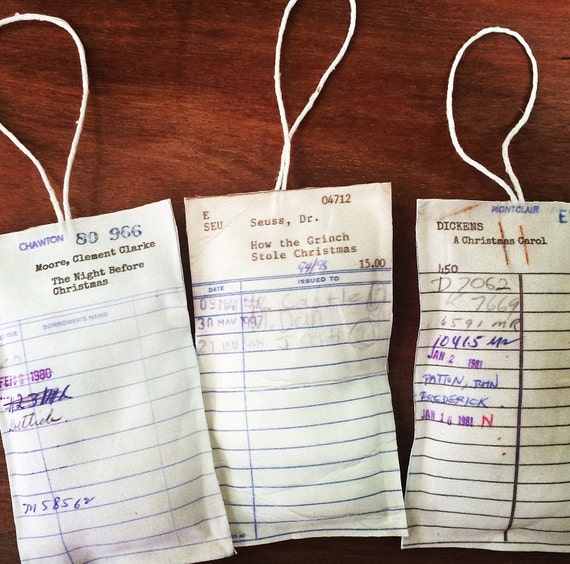 CHAWTON 80 966
Moore, Clement Clarke
The Night Before
Christmas
BORROWER'S NAME
1980
M58562
E 04712
SEU Seuss, Dr.
How the Grinch
Stole Christmas
94/95 15.00
DATE ISSUED TO
09 MAY
30 MAY 1997
21 JAN
MONTCLAIR
DICKENS
A Christmas Carol
450
D 7062
K 7669
4591 MR
10415 MR
JAN 2 1981
PATTON, JOHN
FREDERICK
JAN 18 1981 N